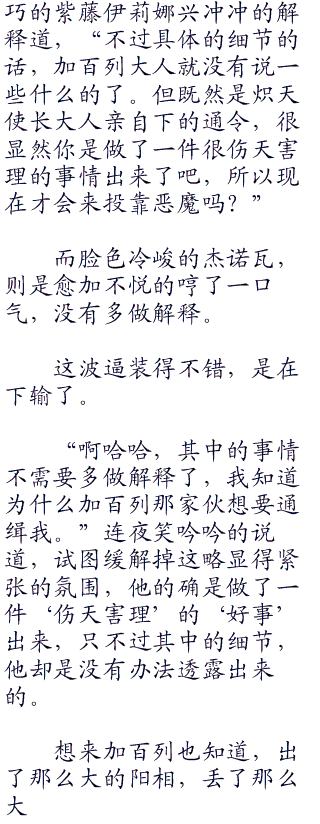 巧的紫藤伊莉娜兴冲冲的解
释道，“不过具体的细节的
话，加百列大人就没有说一
些什么的了。但既然是炽天
使长大人亲自下的通令，很
显然你是做了一件很伤天害
理的事情出来了吧，所以现
在才会来投靠恶魔吗？”
而脸色冷峻的杰诺瓦，
则是愈加不悦的哼了一口
气，没有多做解释。
这波逼装得不错，是在
下输了。
“啊哈哈，其中的事情
不需要多做解释了，我知道
为什么加百列那家伙想要通
缉我。”连夜笑吟吟的说
道，试图缓解掉这略显得紧
张的氛围，他的确是做了一
件‘伤天害理’的‘好事’
出来，只不过其中的细节，
他却是没有办法透露出来
的。
想来加百列也知道，出
了那么大的阳相，丢了那么
大